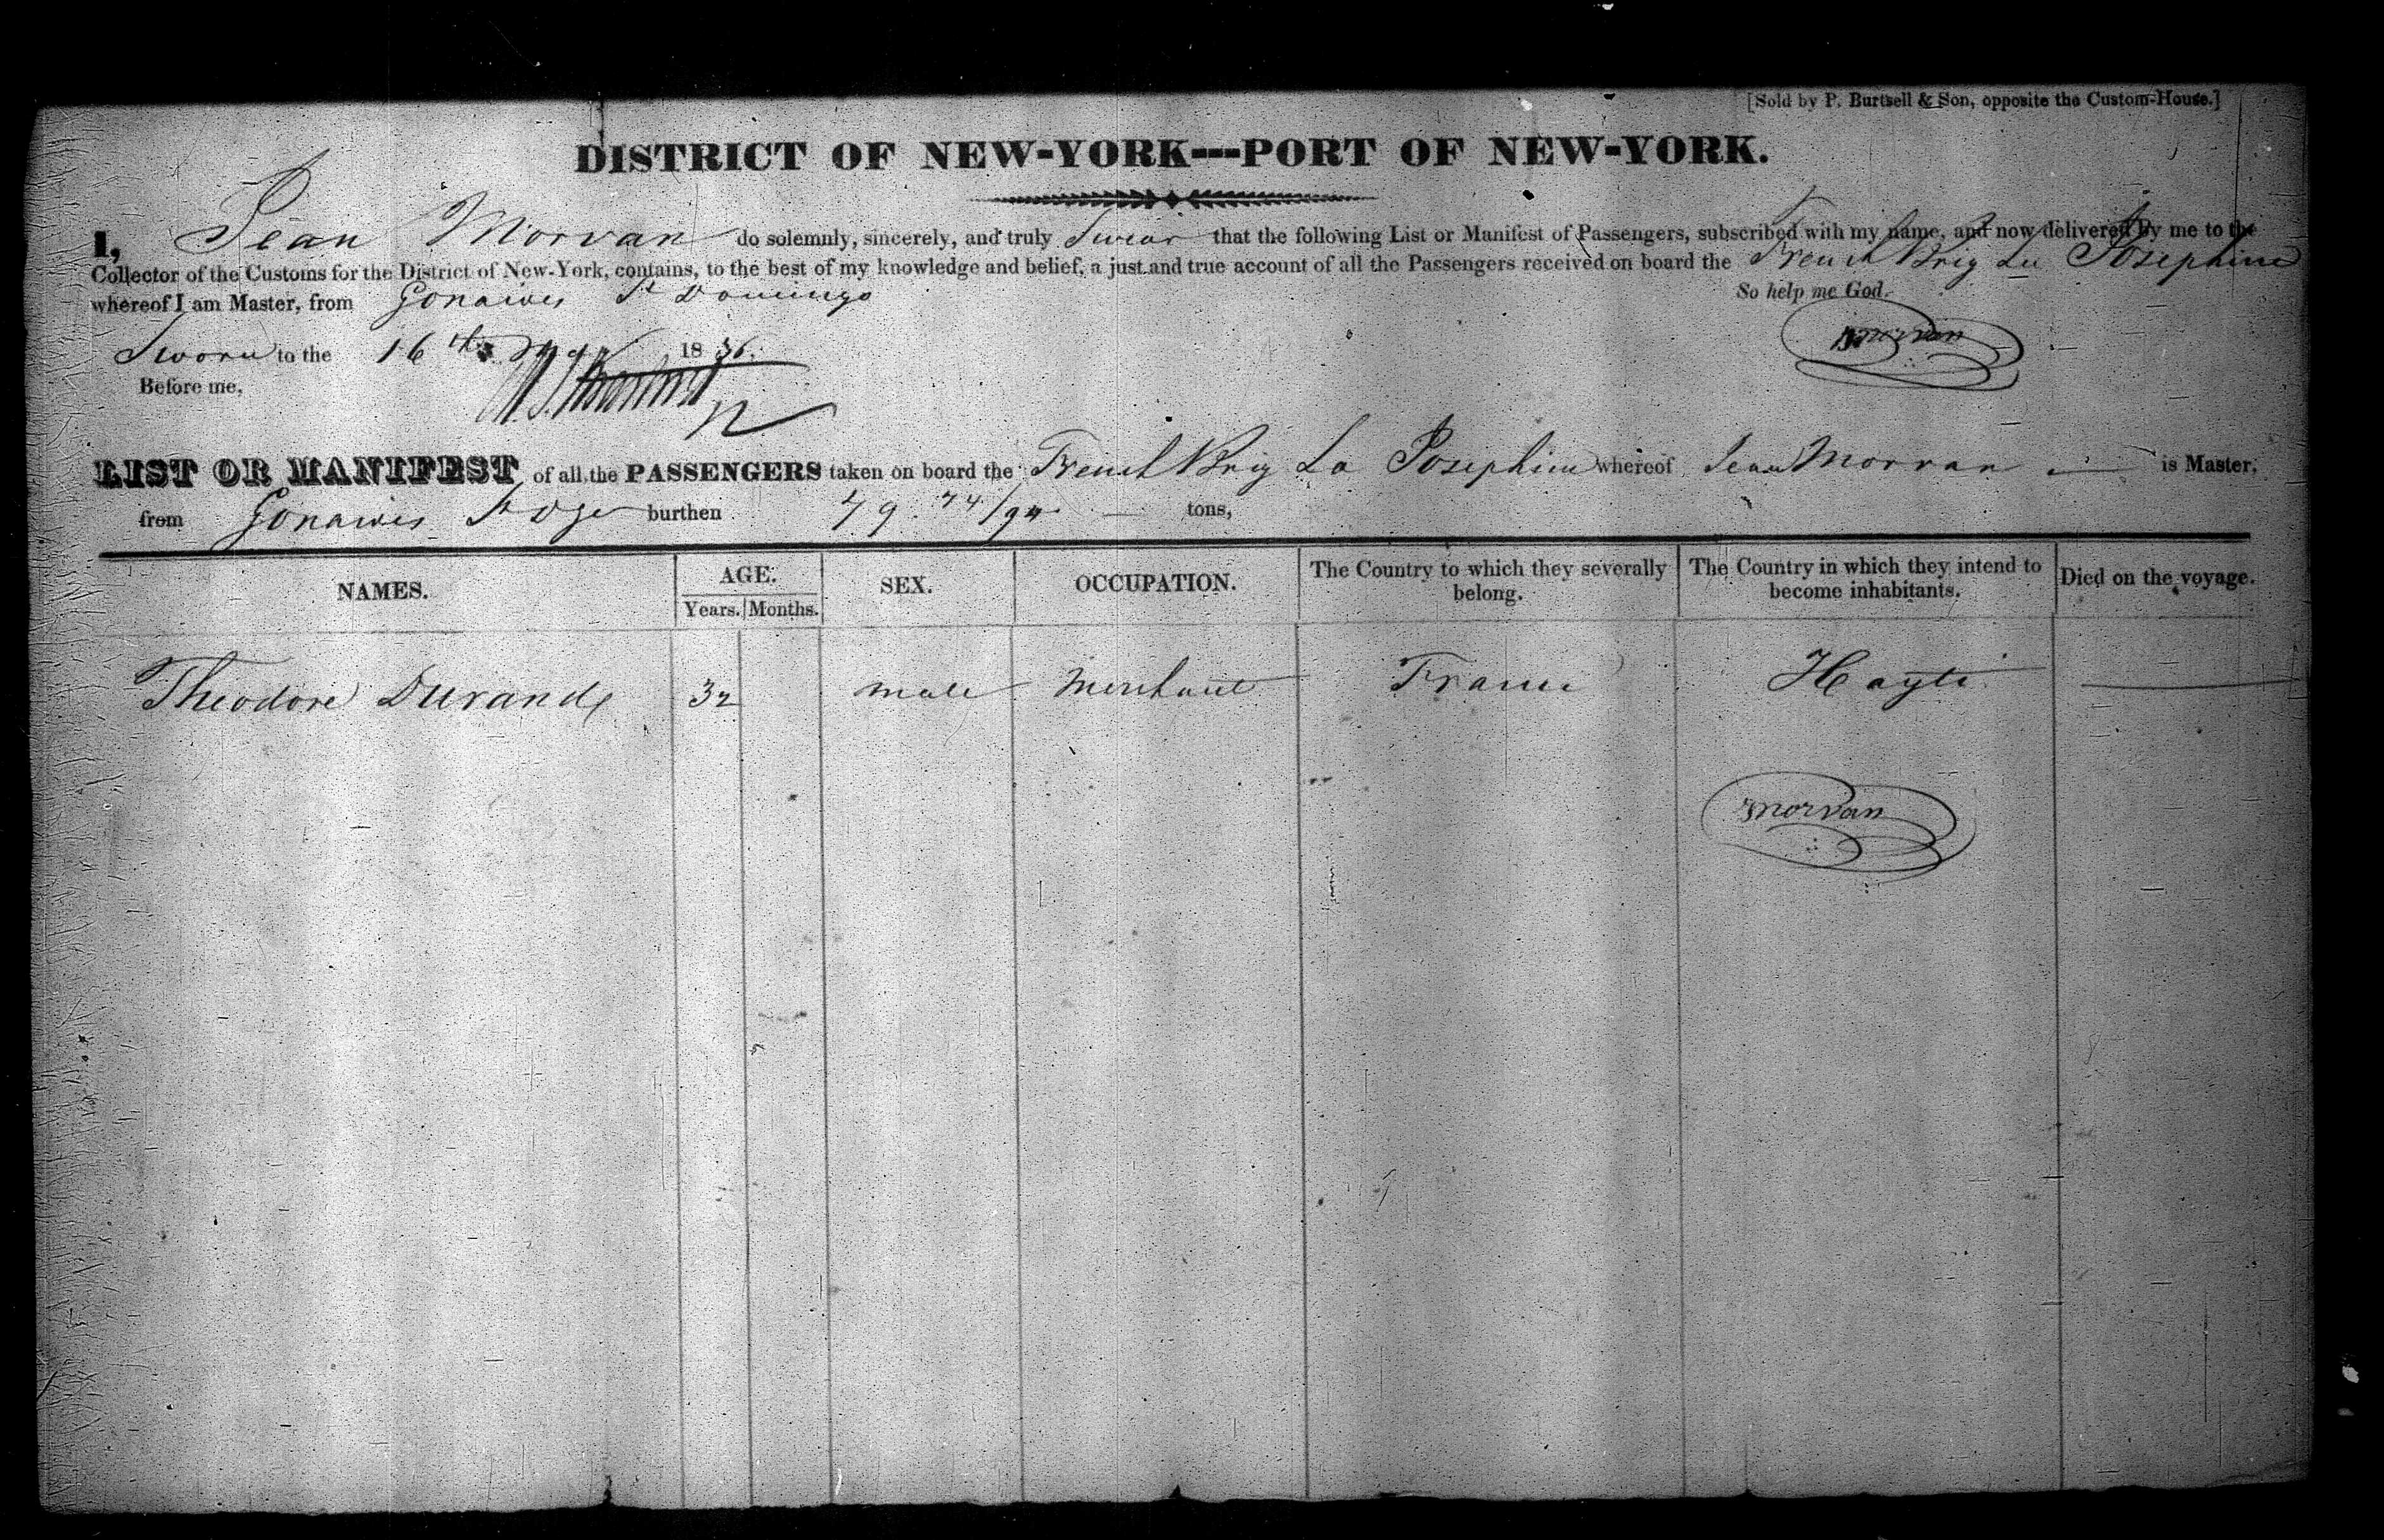 [Sold by P. Burtsell & Son, opposite the Custom-House.]
DISTRICT OF NEW-YORK---PORT OF NEW-YORK.
I, Jean Morvan do solemnly, sincerely, and truly Swear that the following List or Manifest of Passengers, subscribed with my name, and now delivered by me to the
Collector of the Customs for the District of New-York, contains, to the best of my knowledge and belief, a just and true account of all the Passengers received on board the French Brig La Josephine
whereof I am Master, from Gonaives St Domingo So help me God.
Morvan
Sworn to the 16th May 1836.
Before me,
LIST OR MANIFEST of all the PASSENGERS taken on board the French Brig La Josephine whereof Jean Morvan is Master,
from Gonaives St Dgo burthen 79 74/94 tons,
NAMES. AGE. SEX. OCCUPATION. The Country to which they severally belong. The Country in which they intend to become inhabitants. Died on the voyage.
Years. Months.
Theodore Durand 32 male Merchant France Hayti
Morvan